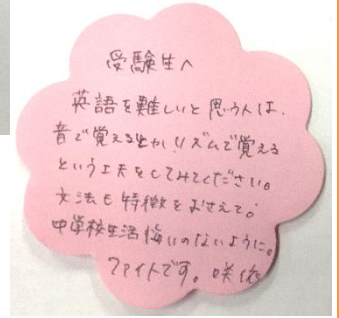 受験生へ
英語を難しいと思う人は、
音で覚えるとかリズムで覚える
という工夫をしてみてください。
文法も特徴をおさえて。
中学校生活悔いのないように。
ファイトです。咲依